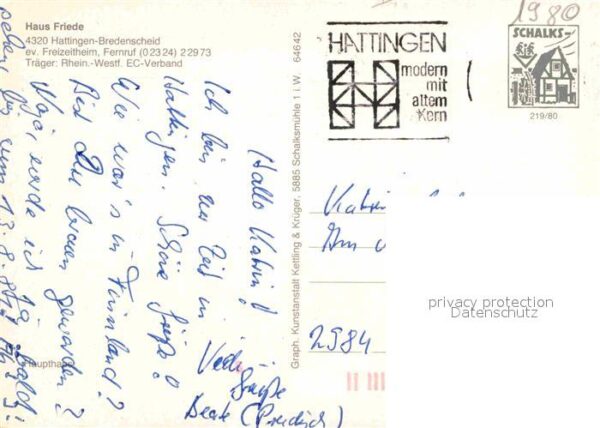 Haus Friede
4320 Hattingen-Bredenscheid
ev. Freizeitheim, Fernruf (0 23 24) 2 29 73
Träger: Rhein.-Westf. EC-Verband
1980
HATTINGEN
modern
mit
altem
Kern
SCHALKS-
219/80
Graph. Kunstanstalt Kettling & Krüger, 5885 Schalksmühle 1 i.W. 64642
Hallo Katrin!
Ich bin zur Zeit in
Hattingen. Schöne Grüße!
Wie war's in Finnland?
Bist Du braun geworden?
Naja, werde ich ja bald
sehen
Viele
Grüße
Beate
Katrin
Am
2984
Haupthaus
privacy protection
Datenschutz